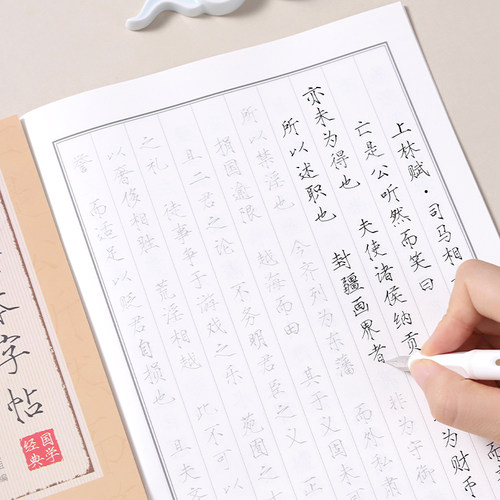 上林赋·司马相
亡是公听然而笑曰
亦未为得也 夫使诸侯纳贡
为财币
所以述职也 封疆画界者 非为守御
所以禁淫也 今齐列为东藩 而外私
损国 越海而田 其于义固未
且二君之论 不务明君臣之义
之礼 徒事争于游戏之乐 苑囿
以奢侈相胜 荒淫相越 此不
而适足以贬君自损也 且夫
字帖
国学经典